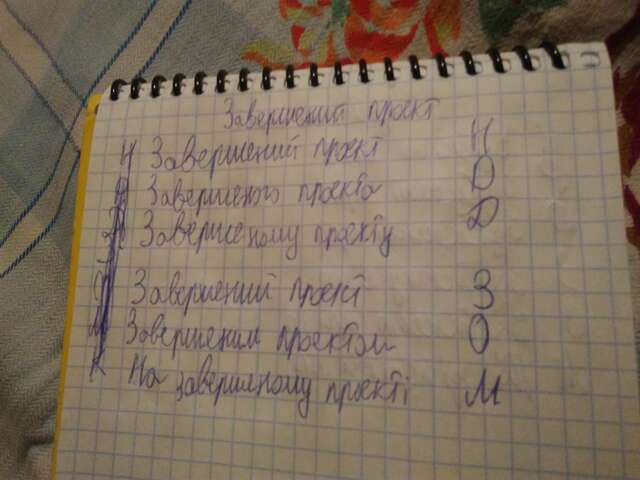 Завершений проєкт
Н Завершений проєкт Н
Завершеного проєкта Д
Завершеному проєкту Д
Завершений проєкт З
Завершеним проєктом О
На завершеному проєкті М